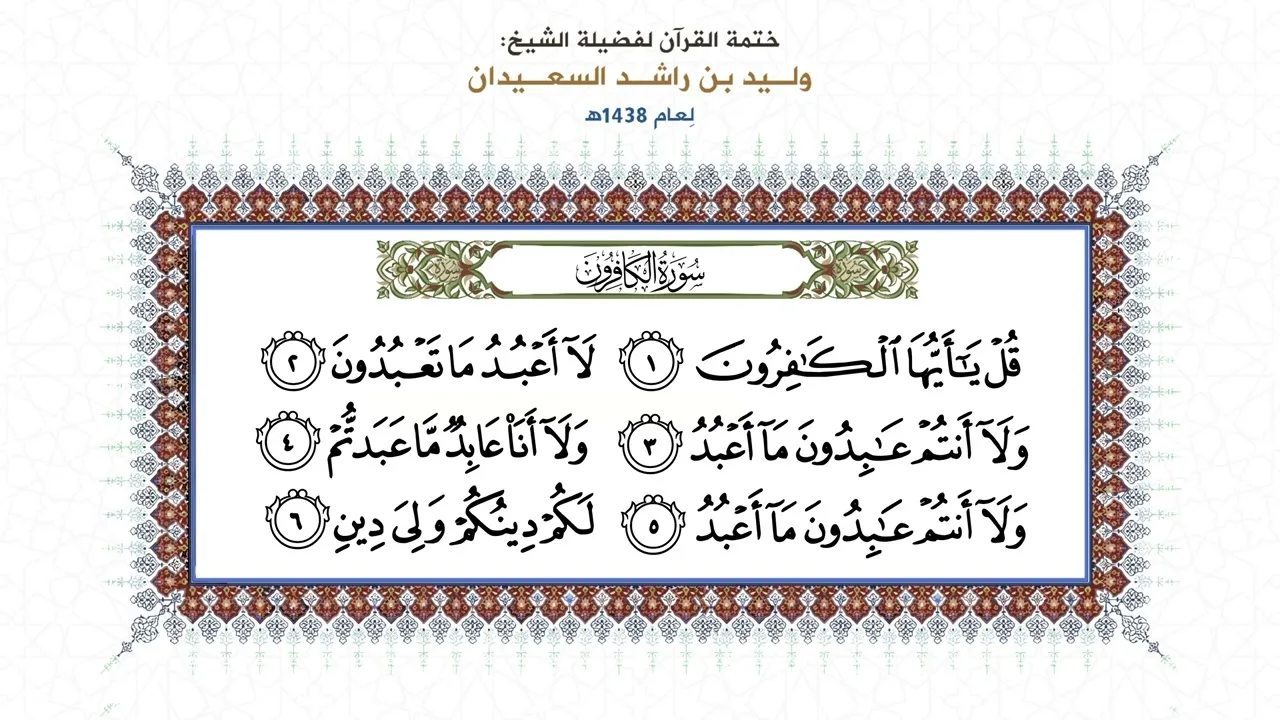 ختمة القرآن لفضيلة الشيخ:
وليد بن راشد السعيدان
لِعام 1438هـ
سورة سُورَةُ الكَافِرُونَ سورة
قُلْ يَـٰٓأَيُّهَا ٱلْكَـٰفِرُونَ ١ لَآ أَعْبُدُ مَا تَعْبُدُونَ ٢
وَلَآ أَنتُمْ عَـٰبِدُونَ مَآ أَعْبُدُ ٣ وَلَآ أَنَا۠ عَابِدٌ مَّا عَبَدتُّمْ ٤
وَلَآ أَنتُمْ عَـٰبِدُونَ مَآ أَعْبُدُ ٥ لَكُمْ دِينُكُمْ وَلِىَ دِينِ ٦